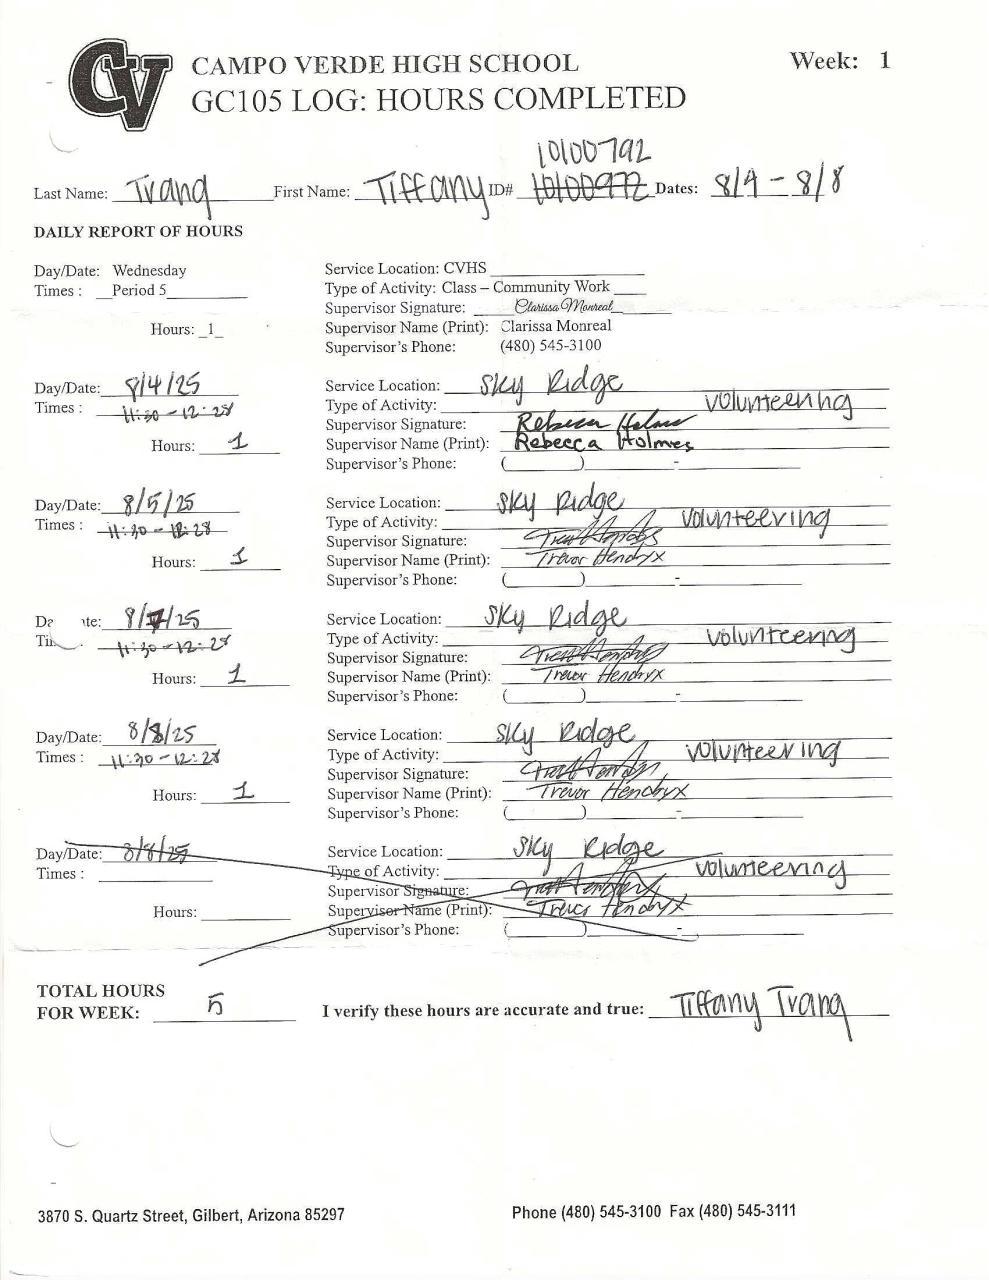 CV
CAMPO VERDE HIGH SCHOOL
Week: 1
GC105 LOG: HOURS COMPLETED
10100792
Last Name: Trang First Name: Tiffany ID# 10100972 Dates: 8/4 - 8/8
DAILY REPORT OF HOURS
Day/Date: Wednesday
Times : Period 5
Hours: 1
Service Location: CVHS
Type of Activity: Class – Community Work
Supervisor Signature: Clarissa Monreal
Supervisor Name (Print): Clarissa Monreal
Supervisor's Phone: (480) 545-3100
Day/Date: 8/4/25
Times : 11:30 - 12:28
Hours: 1
Service Location: Sky Ridge
Type of Activity: volunteering
Supervisor Signature: Rebecca Holmes
Supervisor Name (Print): Rebecca Holmes
Supervisor's Phone: ( ) -
Day/Date: 8/5/25
Times : 11:30 - 12:28
Hours: 1
Service Location: Sky Ridge
Type of Activity: volunteering
Supervisor Signature:
Supervisor Name (Print): Trevor Hendryx
Supervisor's Phone: ( ) -
Da te: 8/7/25
Tim : 11:30 - 12:28
Hours: 1
Service Location: Sky Ridge
Type of Activity: volunteering
Supervisor Signature:
Supervisor Name (Print): Trevor Hendryx
Supervisor's Phone: ( ) -
Day/Date: 8/8/25
Times : 11:30 - 12:28
Hours: 1
Service Location: Sky Ridge
Type of Activity: volunteering
Supervisor Signature:
Supervisor Name (Print): Trevor Hendryx
Supervisor's Phone: ( ) -
Day/Date: 8/8/25
Times :
Hours:
Service Location: Sky Ridge
Type of Activity: volunteering
Supervisor Signature:
Supervisor Name (Print): Trevor Hendryx
Supervisor's Phone: ( ) -
TOTAL HOURS
FOR WEEK: 5
I verify these hours are accurate and true: Tiffany Trang
3870 S. Quartz Street, Gilbert, Arizona 85297
Phone (480) 545-3100 Fax (480) 545-3111